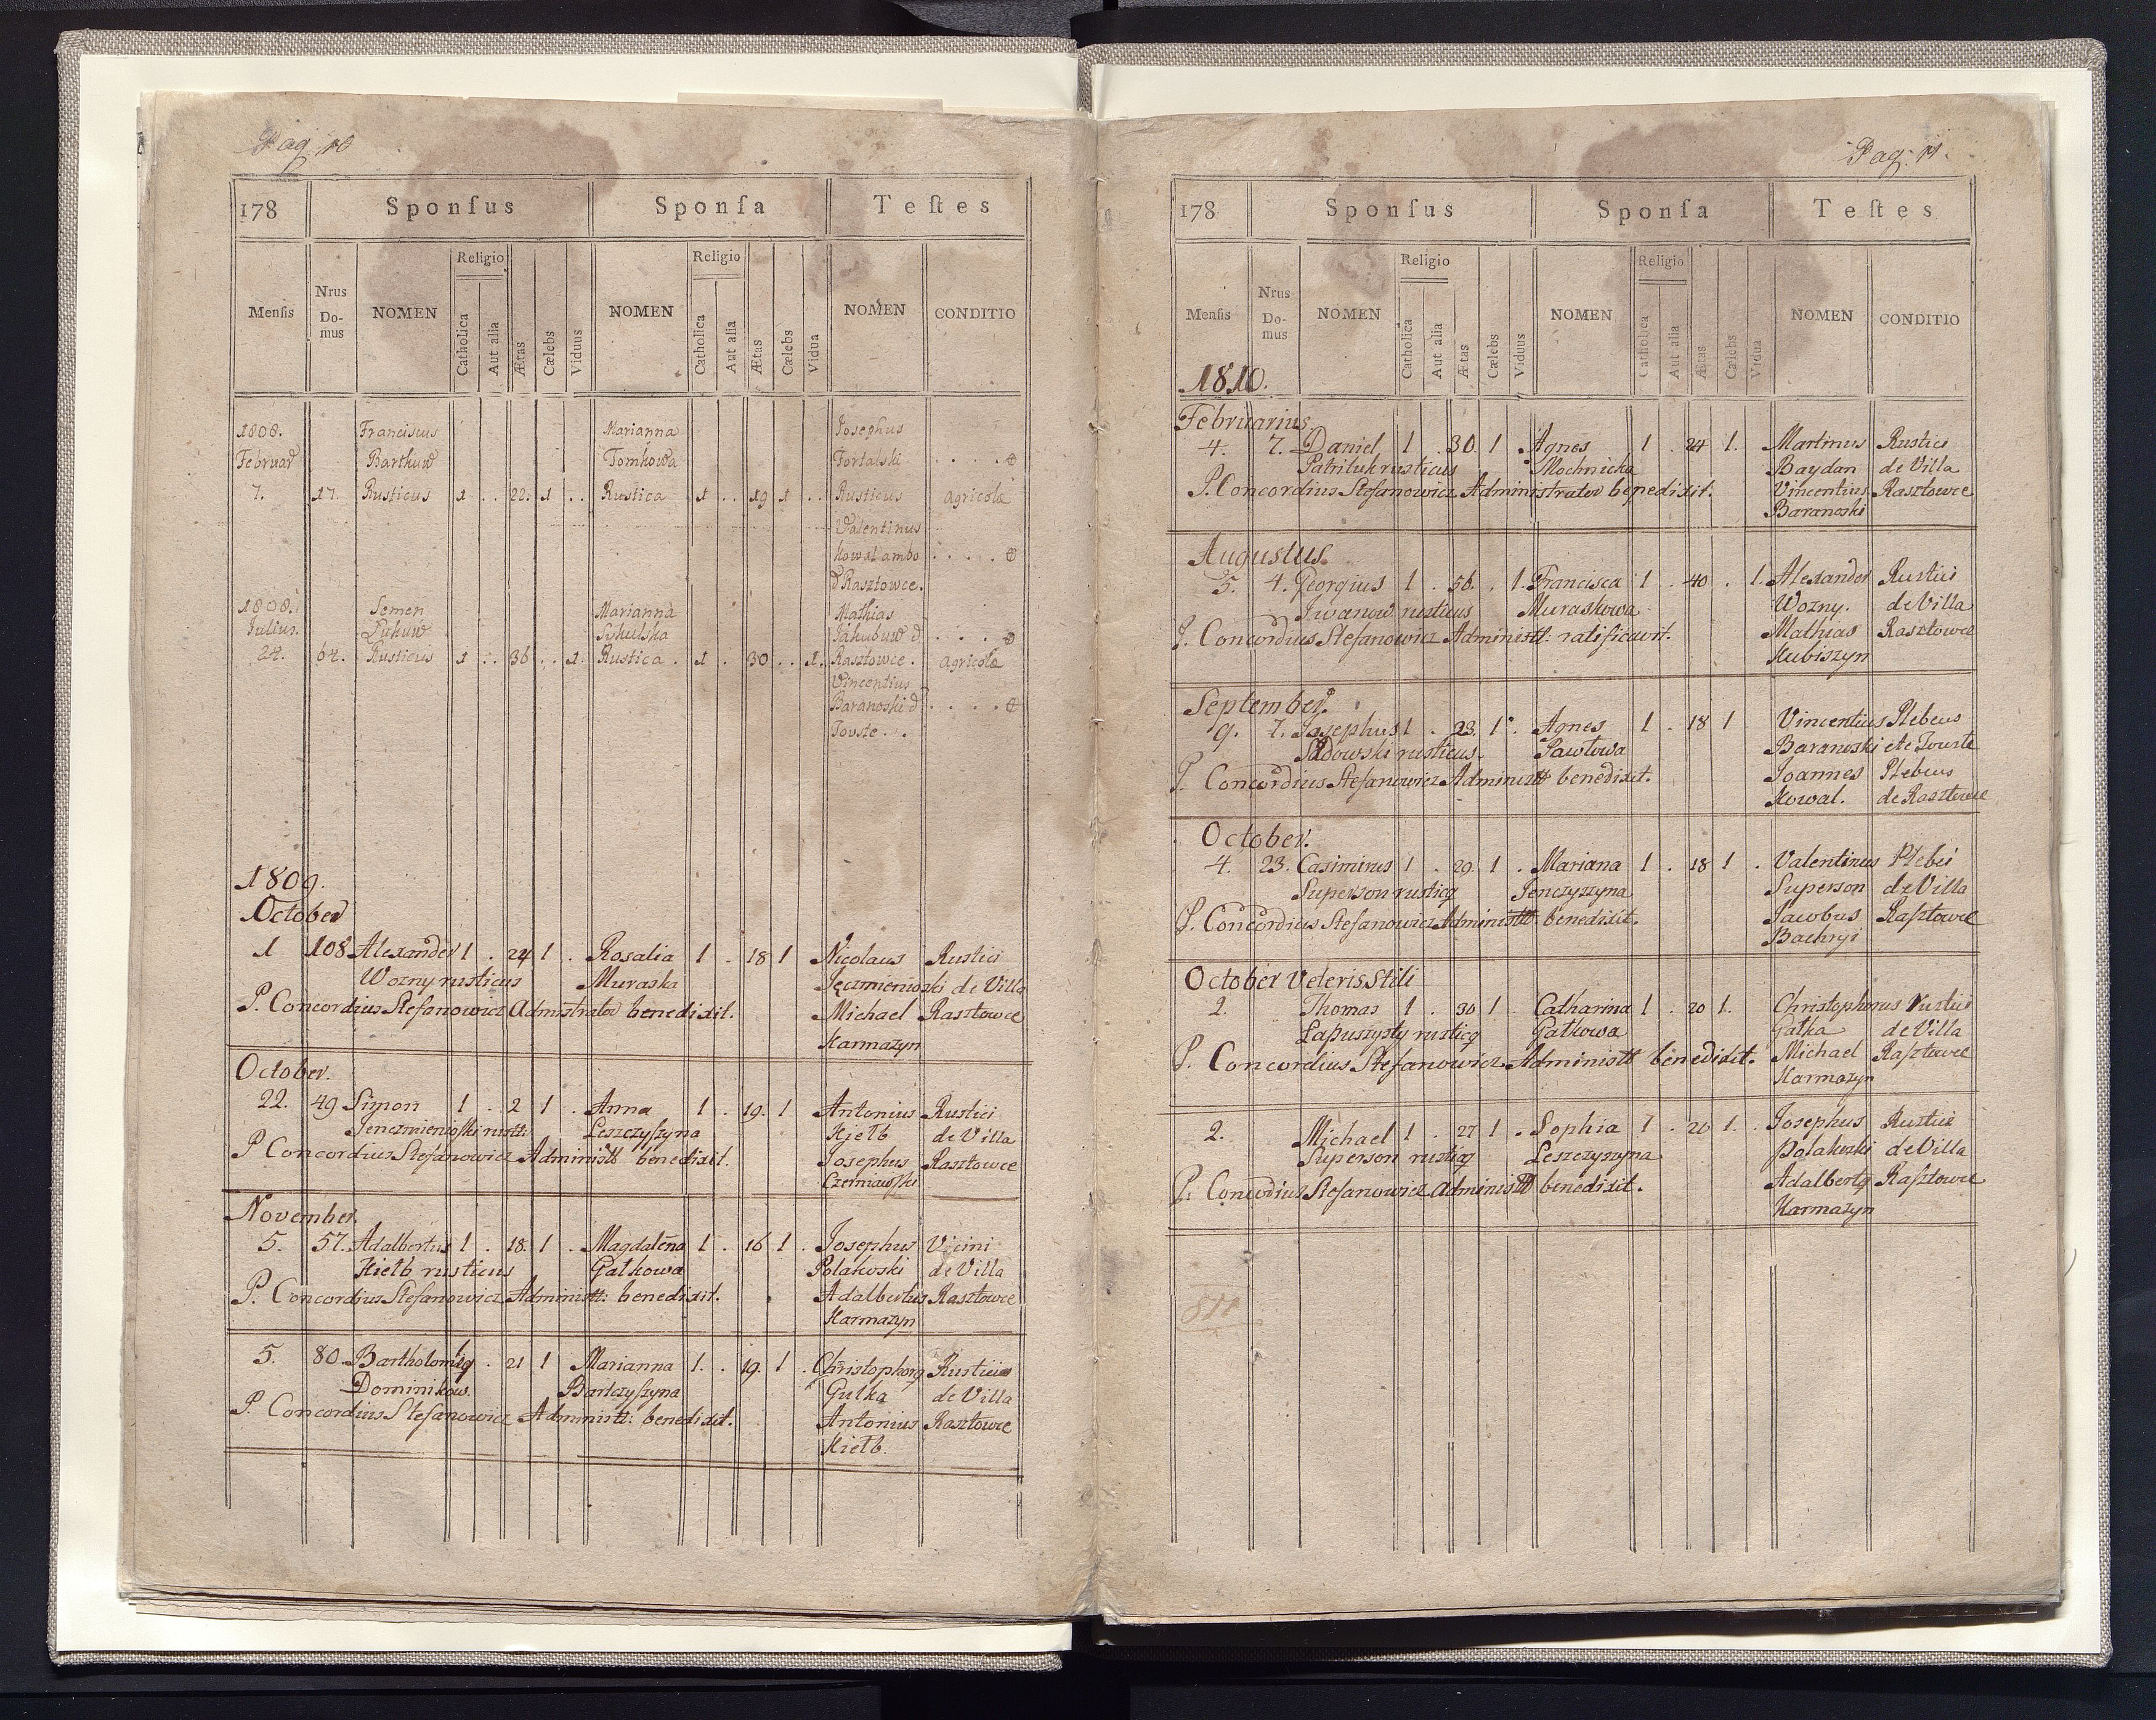 Pag. 10
178 Sponſus Sponſa Teſtes
Menſis Nrus Do-mus NOMEN Religio Catholica Aut alia Ætas Cælebs Viduus NOMEN Religio Catholica Aut alia Ætas Cælebs Vidua NOMEN CONDITIO
1808. Franciscus Marianna Josephus
Februar Barthuw Tomkowa Fortalski
7. 17. Rusticus 1 . . 22. 1 . . Rustica 1 . . 19 1 . . Rusticus agricola
Valentinus
Kowal ambo
d Rasztowce.
1808. Semen Marianna Mathias
Julius. Jakubuw d
24. 64. Rusticus 1 . . 36 . . 1. Rustica . 1 . 30 . . 1. Rasztowce . agricola
Vincentius
Baranoski d
Touste . .
1809.
October
1 108 Alexander 1 . 24 1 . Rosalia 1 . 18 1 Nicolaus Rustici
Wozny rusticus Muraska Jęczmienioski de Villa
P. Concordius Stefanowicz Admistrator benedixit. Michael Rasztowce
Karmazyn
October.
22. 49 Simon 1 . 2 1 . Anna 1 . 19. 1 Antonius Rustici
Jenczmienioſki rustt: Leszczyſzyna Kiełb de Villa
P Concordius Stefanowicz Administt benedixit. Josephus Rasztowce
Czerniawſki
November.
5. 57. Adalbertus 1 . 18. 1 . Magdalena 1 . 16 1 . Josephus Vicini
Kiełb rusticus Gałkowa Polakoski de Villa
P. Concordius Stefanowicz Administt: benedixit. Adalbertus Rasztowce
Karmazyn
5. 80. Bartholomeq 1 . 21 1 Marianna 1. . 19. 1 . Christophorq Rustici
Dominikow. Bartczyſzyna Gułka de Villa
P. Concordius Stefanowicz Administt: benedixit. Antonius Rasztowce
Kiełb.
Pag. 11.
178 Sponſus Sponſa Teſtes
Menſis Nrus Do-mus NOMEN Religio Catholica Aut alia Ætas Cælebs Viduus NOMEN Religio Catholica Aut alia Ætas Cælebs Vidua NOMEN CONDITIO
1810.
Februarius
4. 7. Daniel 1 . 30. 1 . Agnes 1 . 24 1. Martinus Rustici
Patriluk rusticus Mochnicka Baydan de Villa
P. Concordius Stefanowicz Administrator benedixit. Vincentius Rasztowce
Baranoski
Augustus.
5. 4. Georgius 1 . 56. . 1. Francisca 1 . 40 . 1. Alexander Rustici
Iwanow rusticus Muraskowa Wozny. de Villa
P. Concordius Stefanowicz Administt: ratificavit. Mathias Rasztowce
Kubiszyn
September.
9. 7. Josephus 1 . 23. 1 . Agnes 1 . 18 1 Vincentius Plebeus
Sadowski rusticus. Pawłowa Baranoski de Touste
P. Concordius Stefanowicz Administt benedixit. Joannes Plebeus
Kowal. de Rasztowce
October.
4. 23. Casimirus 1 . 29. 1 . Mariana 1 . 18 1 . Valentinus Plebei
Superson rusticq Jenczyszyna Superson de Villa
P. Concordius Stefanowicz Administt. benedixit. Jacobus Raſztowce
Bachryi
October Veteris Stili
2. Thomas 1 . 30 1 . Catharina 1 . 20 1. Christophorus Rustici
Łapuszysty rusticq Gałkowa Gałka de Villa
P. Concordius Stefanowicz Administt benedixit. Michael Raſztowce
Karmazyn
2. Michael 1 . 27 1 . Sophia 1 . 20 1. . Josephus Rustici
Superson rusticq Leszczyszyna Polakoski de Villa
P. Concordius Stefanowicz Administt benedixit. Adalbertq Raſztowce
Karmazyn
811